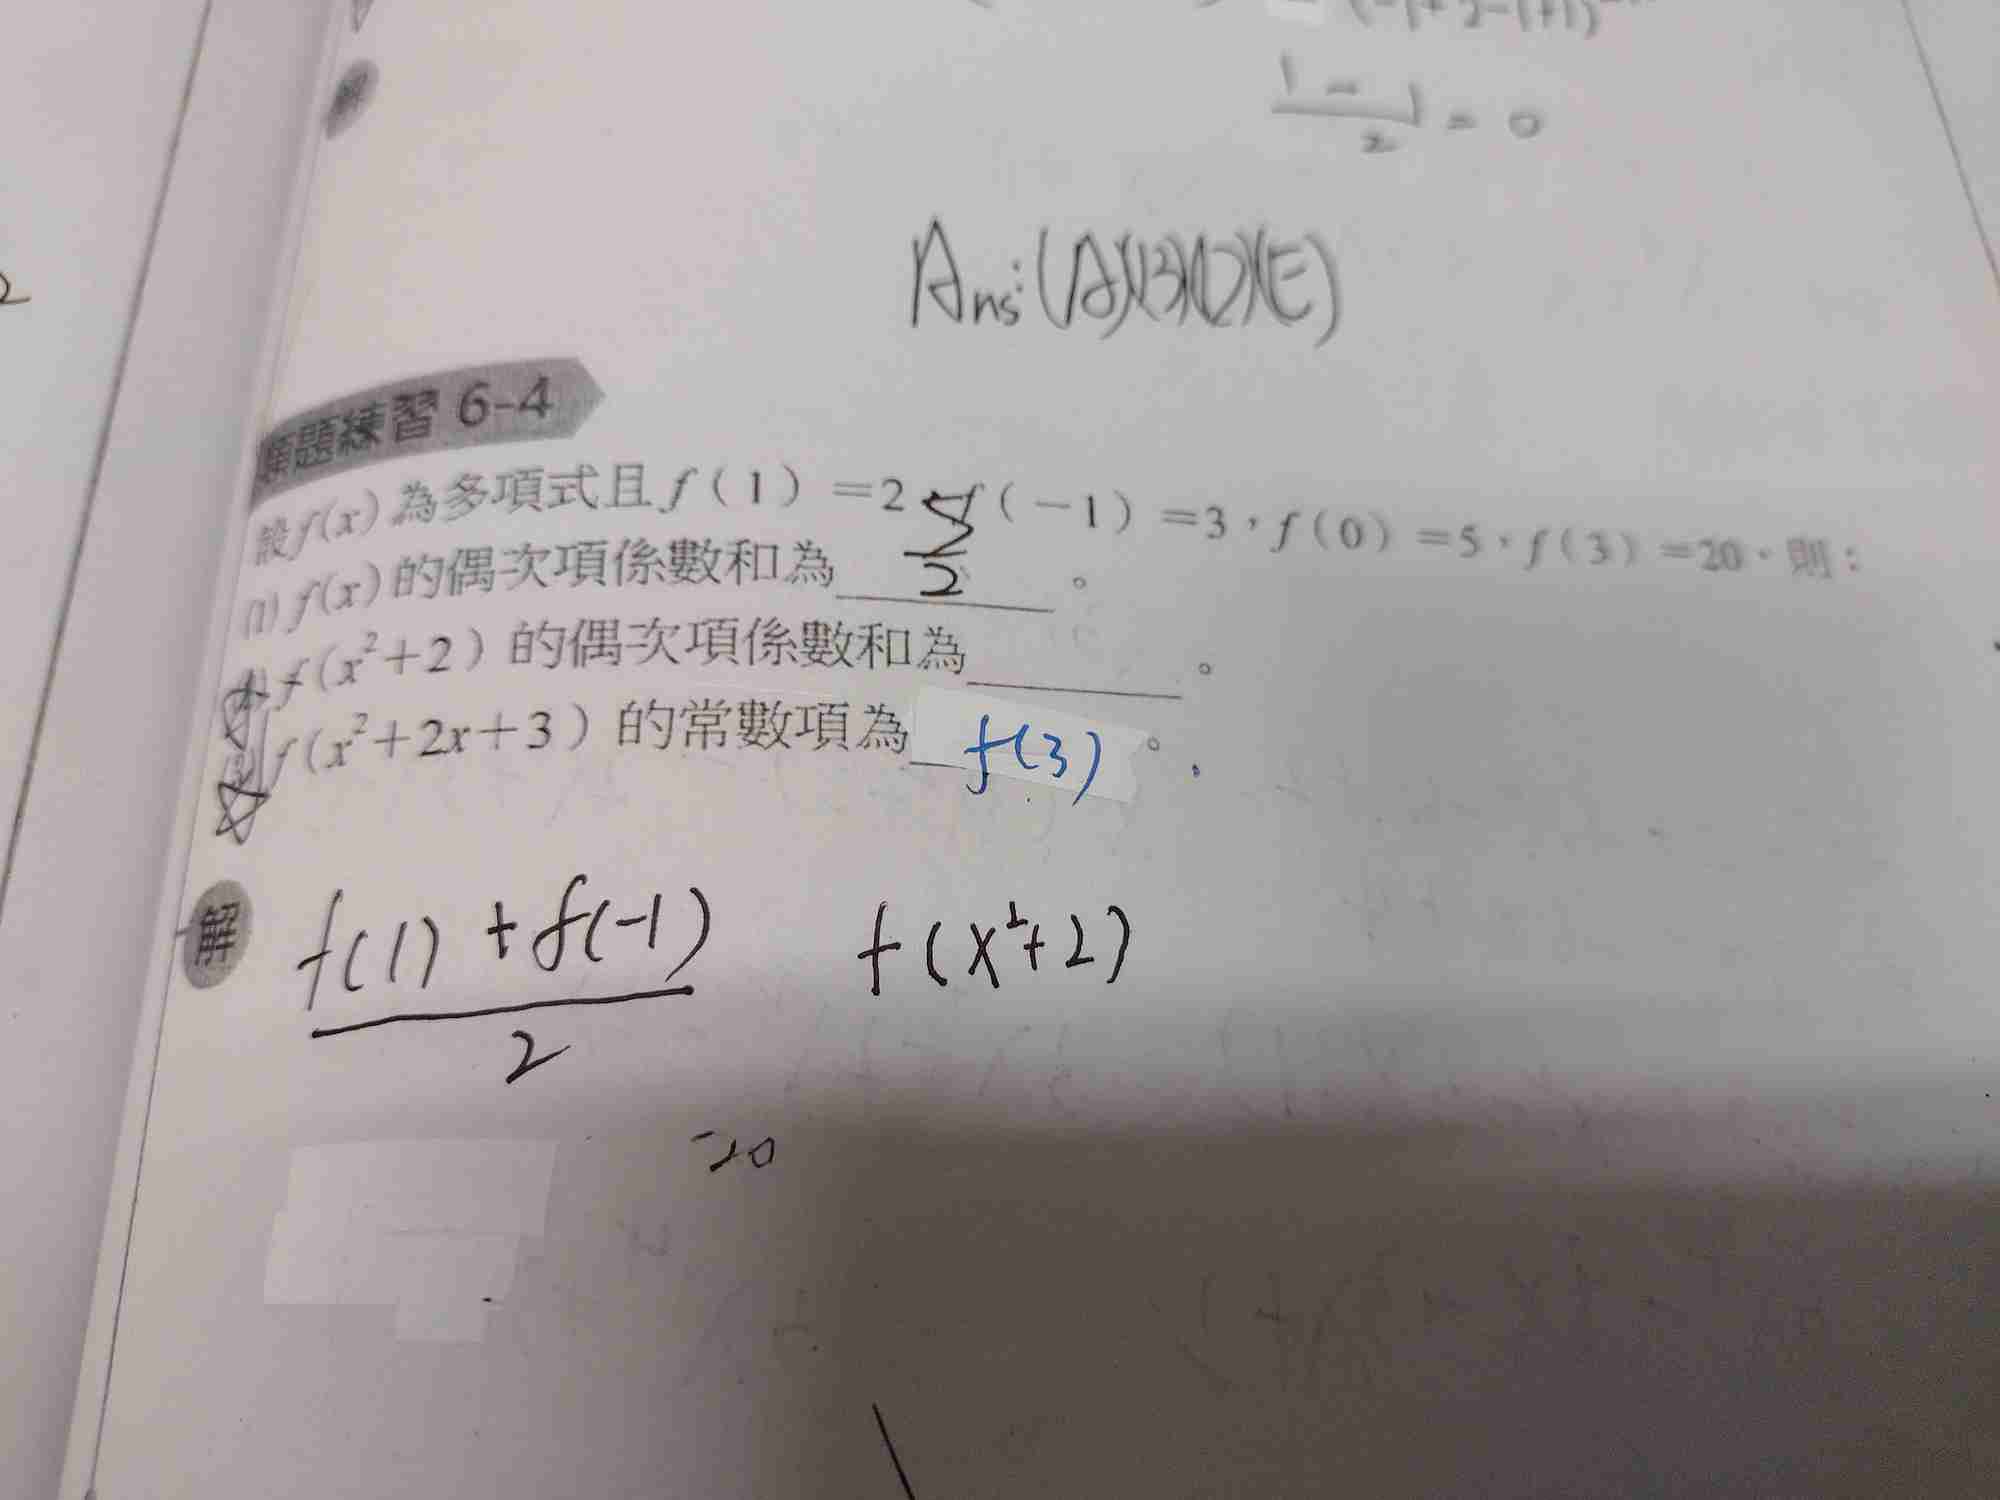 2
解
1 - 1
2
= 0
Ans:(A)(B)(D)(E)
類題練習 6-4
設f(x)為多項式且f(1)=2,f(-1)=3,f(0)=5,f(3)=20,則:
(1) f(x)的偶次項係數和為 5/2 。
f(x²+2)的偶次項係數和為 。
f(x²+2x+3)的常數項為 f(3) 。
解
f(1)+f(-1) f(x²+2)
2
=20